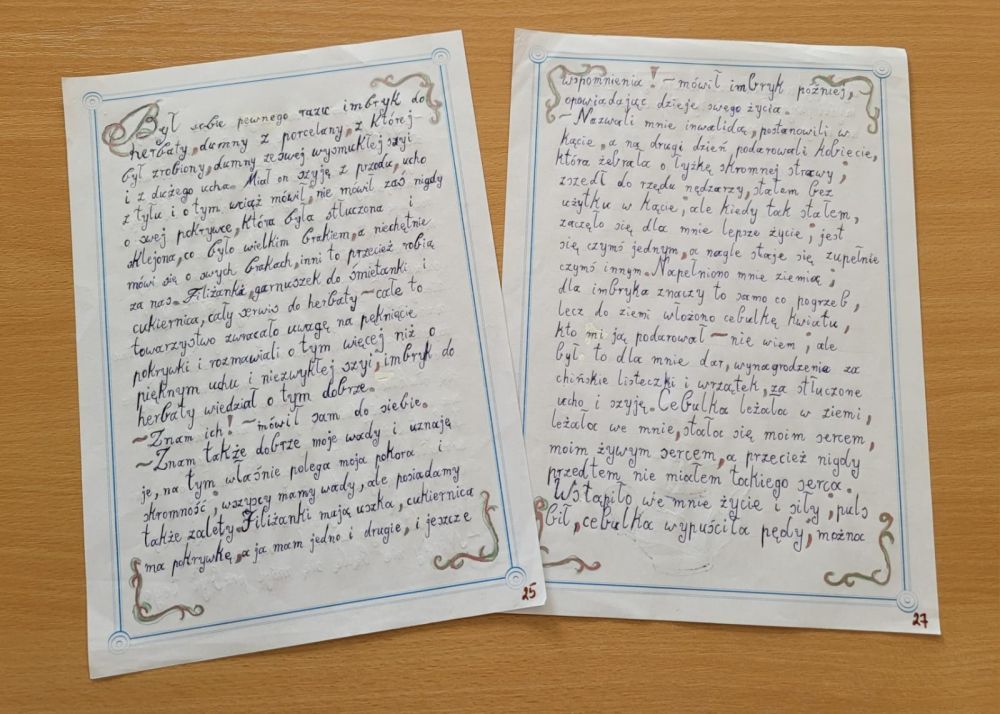 Był sobie pewnego razu imbryk do
herbaty, dumny z porcelany, z której
był zrobiony, dumny ze swej wysmukłej szyi
i z dużego ucha. Miał on szyję z przodu, ucho
z tyłu i o tym wciąż mówił, nie mówił zaś nigdy
o swej pokrywce, która była stłuczona i
sklejona, co było wielkim brakiem, a niechętnie
mówi się o swych brakach, inni to przecież robią
za nas. Filiżanki, garnuszek do śmietanki i
cukiernica, cały serwis do herbaty – całe to
towarzystwo zwracało uwagę na pęknięcie
pokrywki i rozmawiali o tym więcej niż o
pięknym uchu i niezwykłej szyi, imbryk do
herbaty wiedział o tym dobrze.
– Znam ich! – mówił sam do siebie.
– Znam także dobrze moje wady i uznaję
je, na tym właśnie polega moja pokora i
skromność; wszyscy mamy wady, ale posiadamy
także zalety. Filiżanki mają uszka, cukiernica
ma pokrywkę, a ja mam jedno i drugie, i jeszcze
25
wspomnienia! – mówił imbryk później,
opowiadając dzieje swego życia.
– Nazwali mnie inwalidą, postanowili w
kącie, a na drugi dzień podarowali kobiecie,
która żebrała o łyżkę skromnej strawy;
zszedł do rzędu nędzarzy, stałem bez
użytku w kącie; ale kiedy tak stałem,
zaczęło się dla mnie lepsze życie; jest
się czymś jednym, a nagle staje się zupełnie
czymś innym. Napełniono mnie ziemią;
dla imbryka znaczy to samo co pogrzeb,
lecz do ziemi włożono cebulkę kwiatu,
kto mi ją podarował – nie wiem; ale
był to dla mnie dar, wynagrodzenia za
chińskie listeczki i wrzątek, za stłuczone
ucho i szyję. Cebulka leżała w ziemi,
leżała we mnie, stała się moim sercem,
moim żywym sercem, a przecież nigdy
przedtem nie miałem takiego serca.
Wstąpiło we mnie życie i siły; puls
bił, cebulka wypuściła pędy; można
27